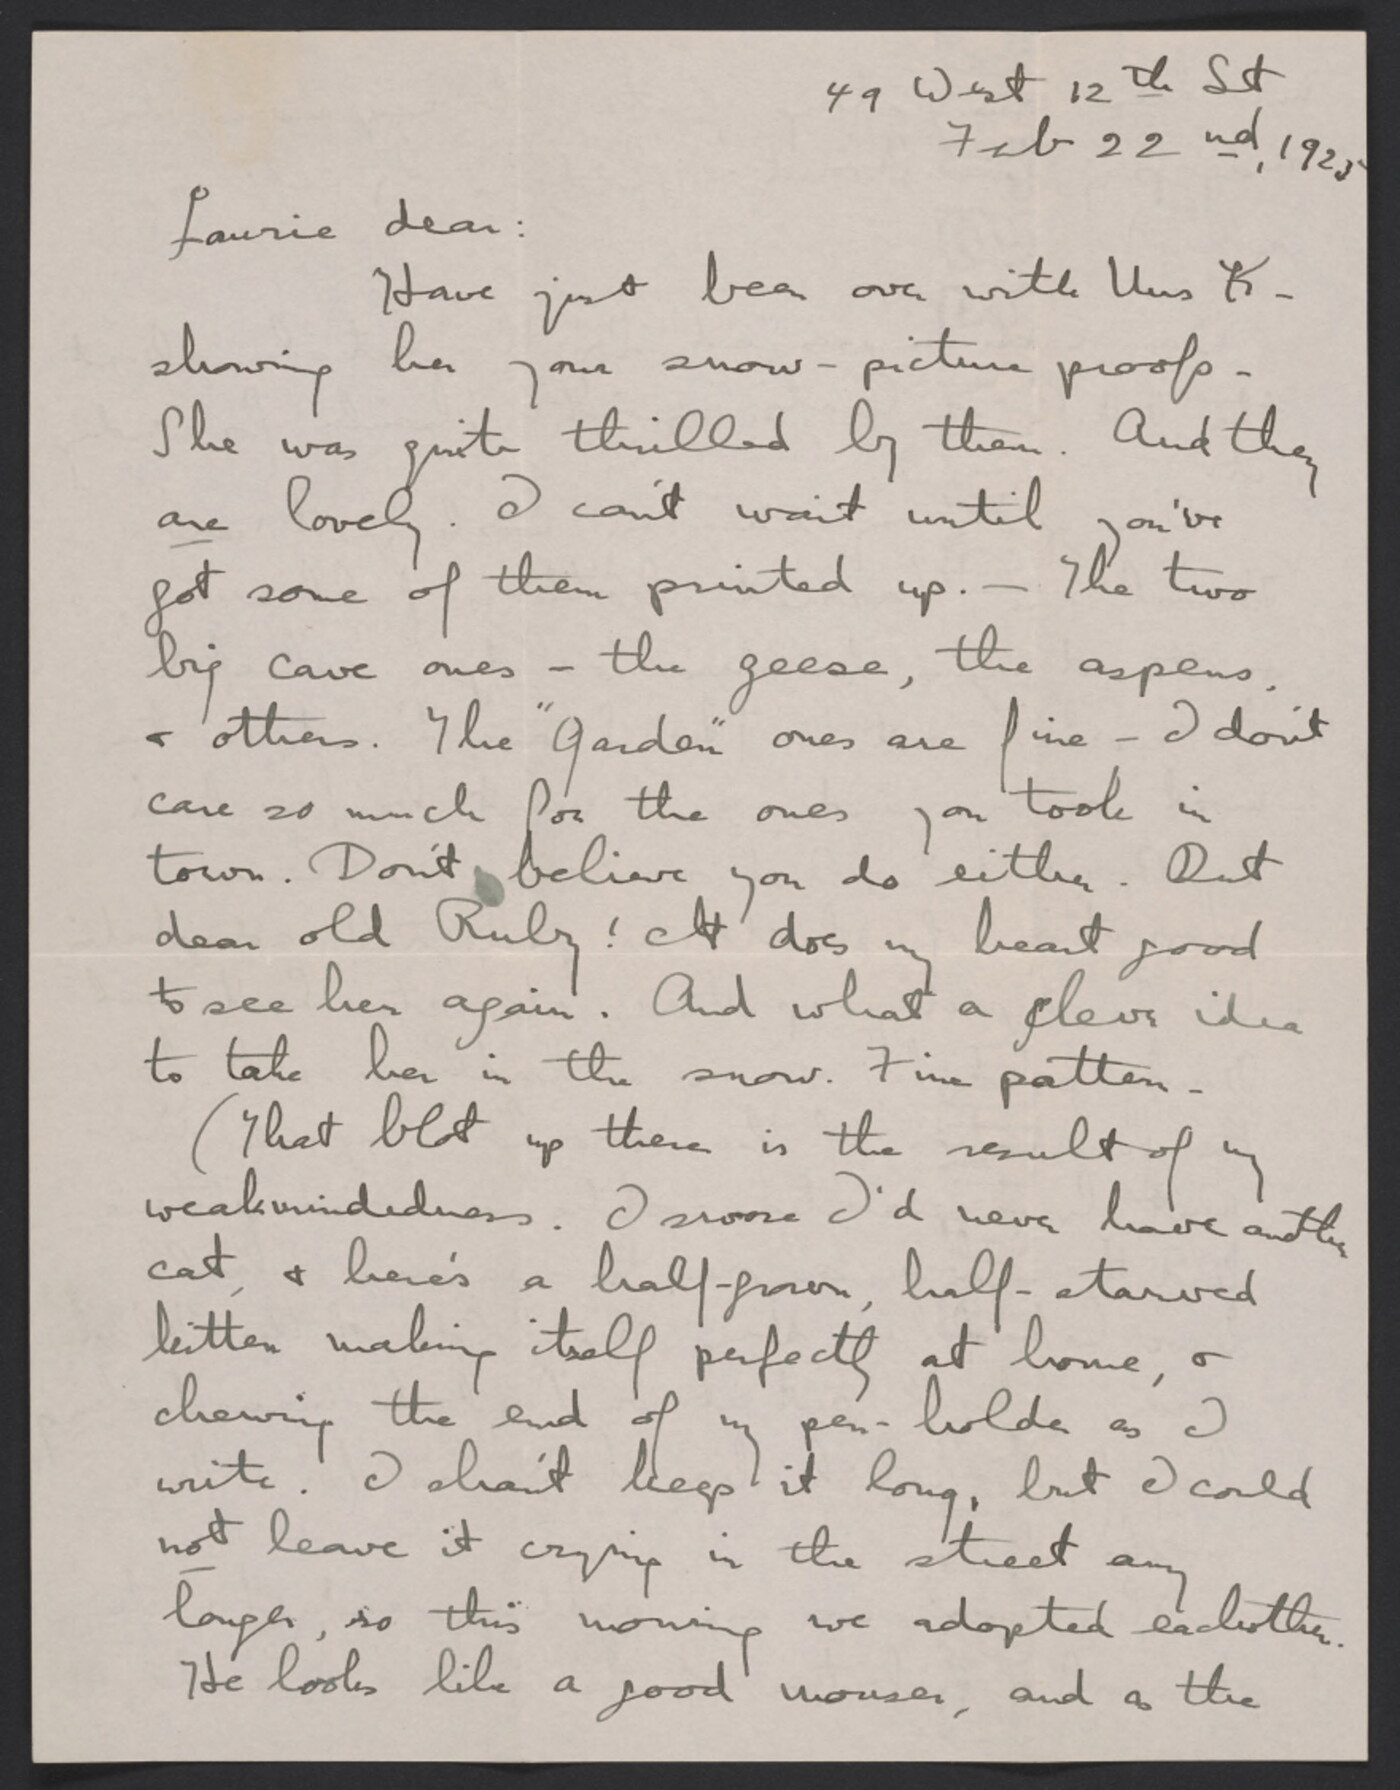 49 West 12th St
Feb 22nd, 1925
Laurie dear:
Have just been over with Mrs K -
showing her your snow-picture proofs -
She was quite thrilled by them. And they
are lovely. I can't wait until you've
got some of them printed up. — The two
big cave ones - the geese, the aspens,
& others. The "Garden" ones are fine - I don't
care so much for the ones you took in
town. Don't believe you do either. But
dear old Ruby! It does my heart good
to see her again. And what a clever idea
to take her in the snow. Fine pattern -
(That blot up there is the result of my
weakmindedness. I swore I'd never have another
cat, & here's a half-grown, half-starved
kitten making itself perfectly at home, &
chewing the end of my pen-holder as I
write. I shan't keep it long, but I could
not leave it crying in the street any
longer, so this morning we adopted eachother.
He looks like a good mouser, and as the